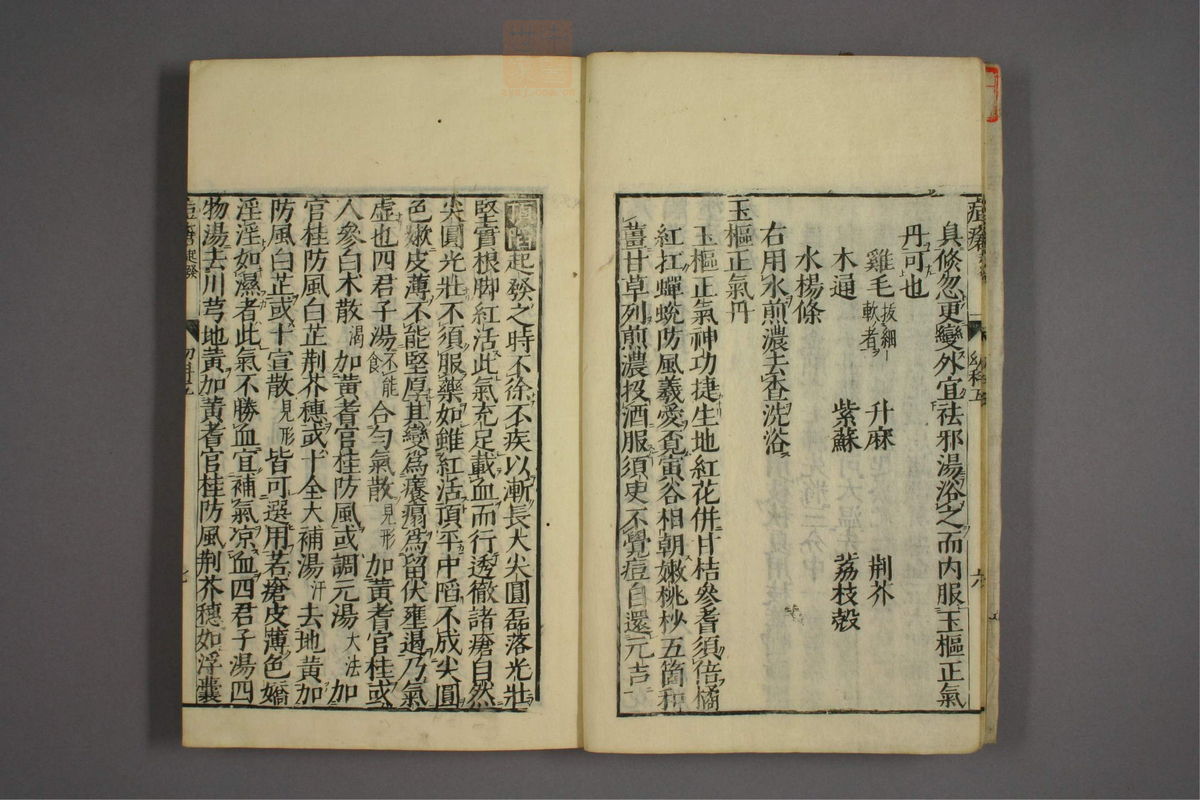 具倏忽更變外宜祛邪湯浴之而內服玉樞正氣
丹可也
雞毛拔細軟者 升麻 荆芥
木通 紫蘇 荔枝殼
水楊條
右用水煎濃去查洗浴
玉樞正氣丹
玉樞正氣神功捷生地紅花併甘桔參耆須倍橘
紅扛蟬蛻防風義愛寅谷相朝嫩桃杪五箇和
薑甘草列煎濃投酒服須臾不覺痘自還元吉
幼科五
六
頂陷起發之時不徐不疾以漸長大尖圓磊落光壯
堅實根脚紅活此氣充足載血而行透徹諸瘡自然
尖圓光壯不須服藥如雖紅活頂平中陷不成尖圓
色嫩皮薄不能堅厚其變爲癢瘍爲留伏壅遏乃氣
虛也四君子湯不能食合勻氣散見形加黃耆官桂或
人參白木散渴加黃耆官桂防風或調元湯大法加
官桂防風白芷荆芥穗或十全大補湯汗去地黃加
防風白芷或十宣散見形皆可選用若瘡皮薄色嬌
淫淫如濕者此氣不勝血宜補氣凉血四君子湯四
物湯去川芎地黃加黃耆官桂防風荆芥穗如浮囊